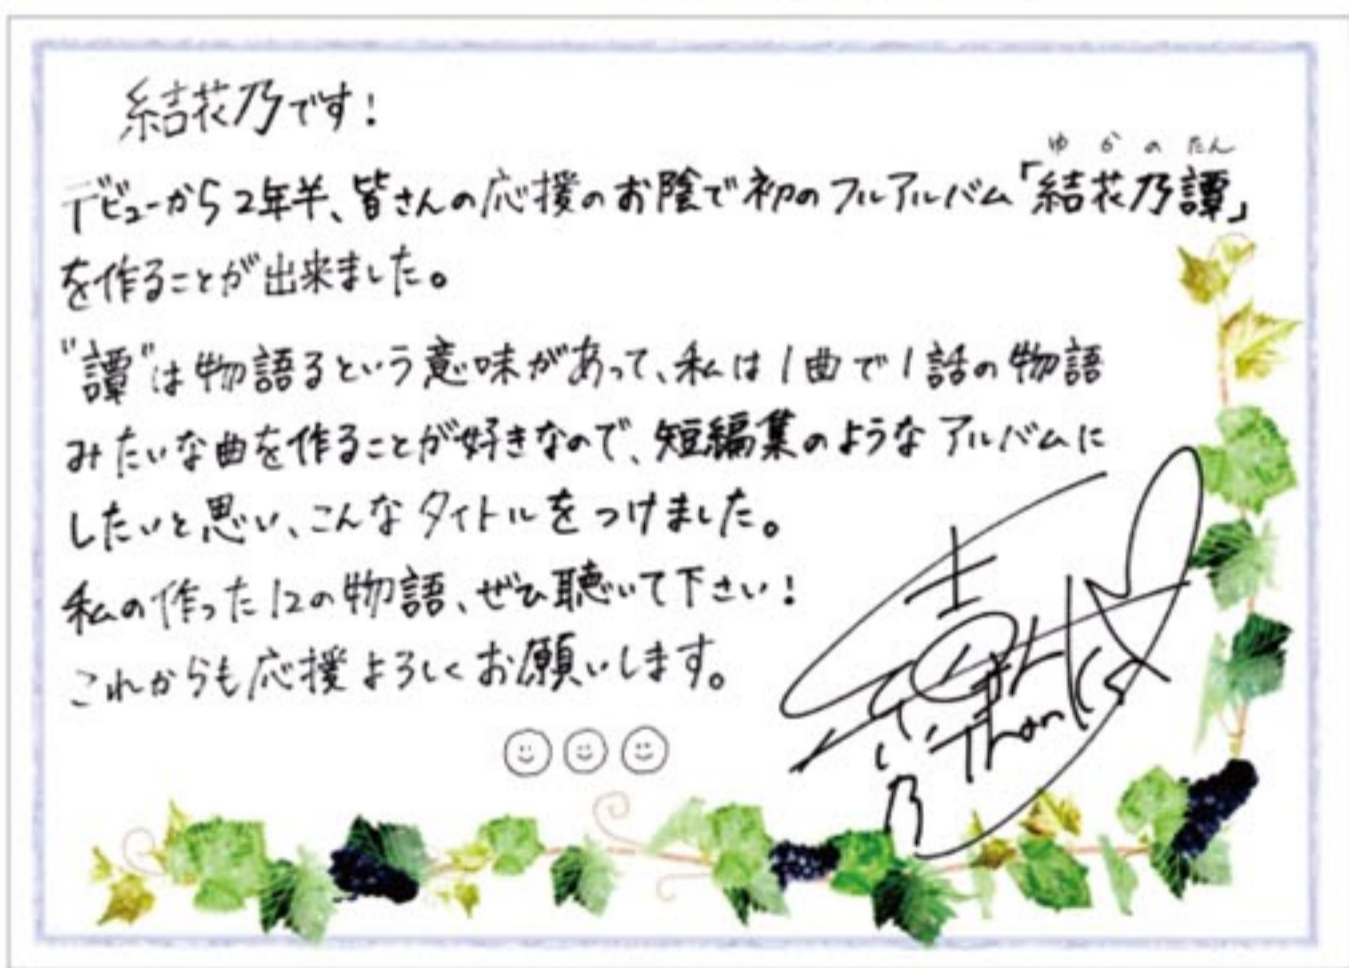 結花乃です!
デビューから2年半、皆さんの応援のお陰で初のフルアルバム「結花乃譚」
ゆかのたん
を作ることが出来ました。
"譚"は物語るという意味があって、私は1曲で1話の物語
みたいな曲を作ることが好きなので、短編集のようなアルバムに
したいと思い、こんなタイトルをつけました。
私の作った12の物語、ぜひ聴いて下さい!
これからも応援よろしくお願いします。
Thanks